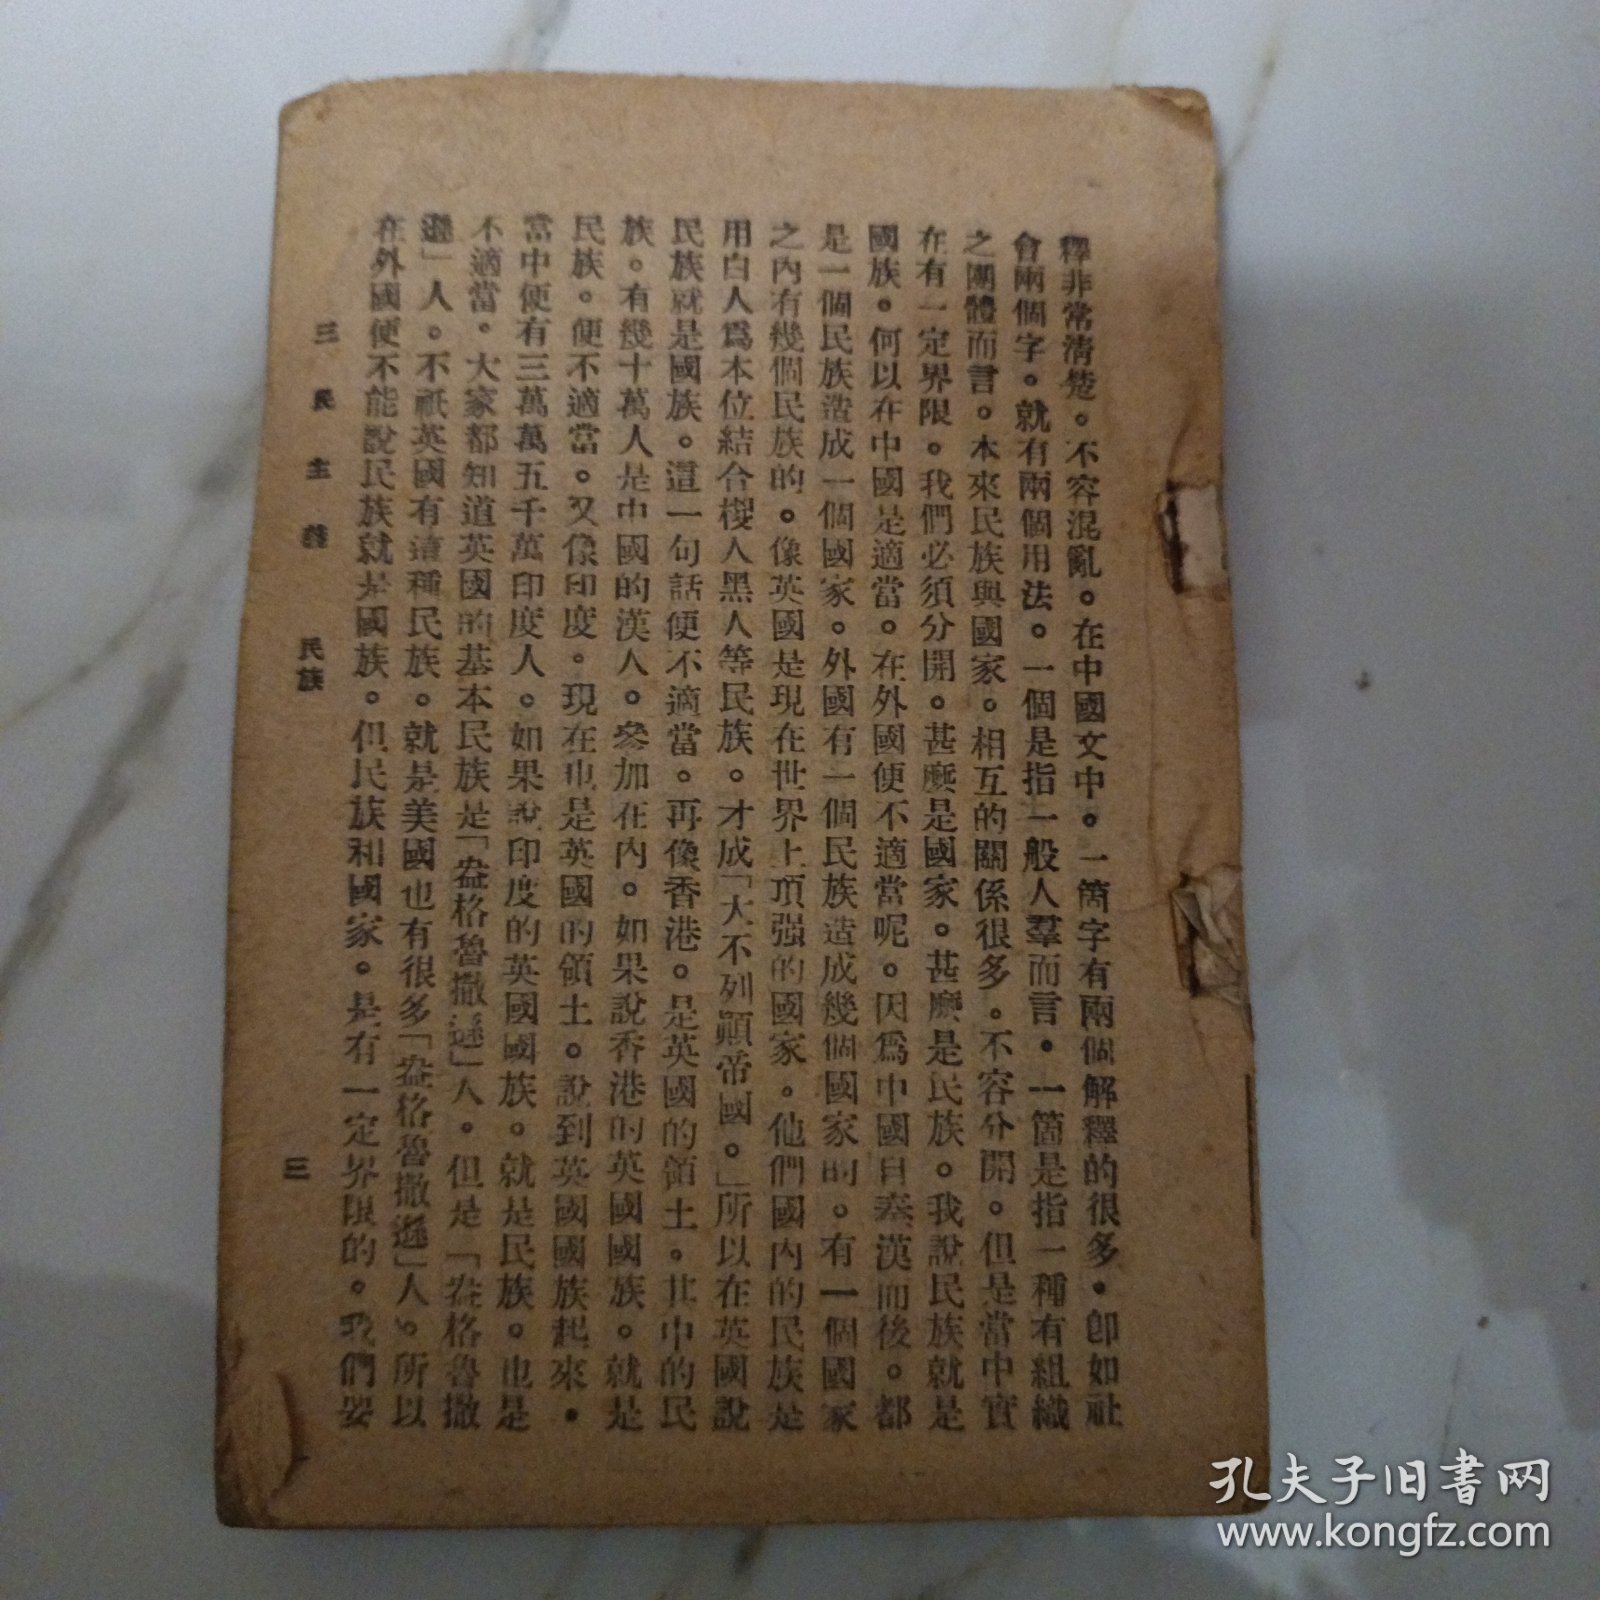 釋非常清楚。不容混亂。在中國文中。一箇字有兩個解釋的很多。卽如社
會兩個字。就有兩個用法。一個是指一般人羣而言。一箇是指一種有組織
之團體而言。本來民族與國家。相互的關係很多。不容分開。但是當中實
在有一定界限。我們必須分開。甚麽是國家。甚麽是民族。我說民族就是
國族。何以在中國是適當。在外國便不適當呢。因爲中國自秦漢而後。都
是一個民族造成一個國家。外國有一個民族造成幾個國家的。有一個國家
之內有幾個民族的。像英國是現在世界上頂强的國家。他們國內的民族是
用白人爲本位結合椶人黑人等民族。才成「大不列顚帝國。」所以在英國說
民族就是國族。這一句話便不適當。再像香港。是英國的領土。其中的民
族。有幾十萬人是中國的漢人。參加在內。如果說香港的英國國族。就是
民族。便不適當。又像印度。現在也是英國的領土。說到英國國族起來。
當中便有三萬萬五千萬印度人。如果說印度的英國國族。就是民族。也是
不適當。大家都知道英國的基本民族是「盎格魯撒遜」人。但是「盎格魯撒
遜」人。不祇英國有這種民族。就是美國也有很多「盎格魯撒遜」人。所以
在外國便不能說民族就是國族。但民族和國家。是有一定界限的。我們要
三民主義 民族 三
孔夫子旧书网
www.kongfz.com